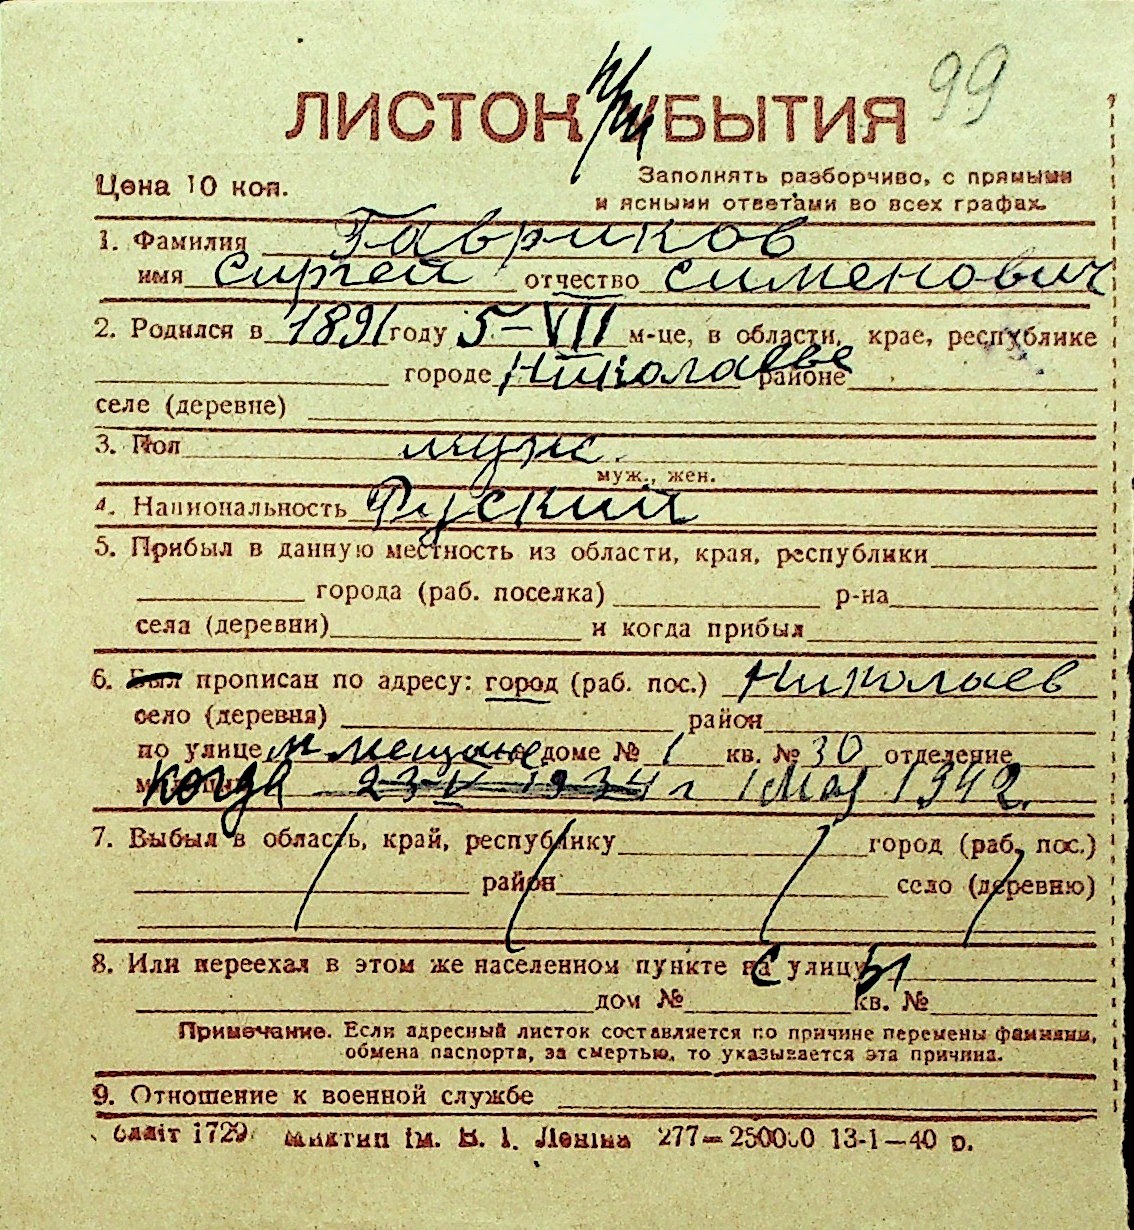 99
ЛИСТОК УБЫТИЯ
при
Цена 10 коп.
Заполнять разборчиво, с прямыми
и ясными ответами во всех графах.
1. Фамилия Гавриков
имя Сиргей отчество Сименович
2. Родился в 1891 году 5-VII м-це, в области, крае, республике
городе Николаеве районе
селе (деревне)
3. Пол муж.
муж., жен.
4. Национальность Руский
5. Прибыл в данную местность из области, края, республики
города (раб. поселка) р-на
села (деревни) и когда прибыл
6. Был прописан по адресу: город (раб. пос.) Николаев
село (деревня) район
по улице м мещанс доме № 1 кв. № 30 отделение
когда 23-V 1934 г 1 Мая 1942.
7. Выбыл в область, край, республику город (раб. пос.)
район село (деревню)
8. Или переехал в этом же населенном пункте с улицы
дом № кв. №
Примечание. Если адресный листок составляется по причине перемены фамилии,
обмена паспорта, за смертью, то указывается эта причина.
9. Отношение к военной службе
блліт 1729 Миктип ім. В. І. Леніна 277—250000 13-1—40 р.